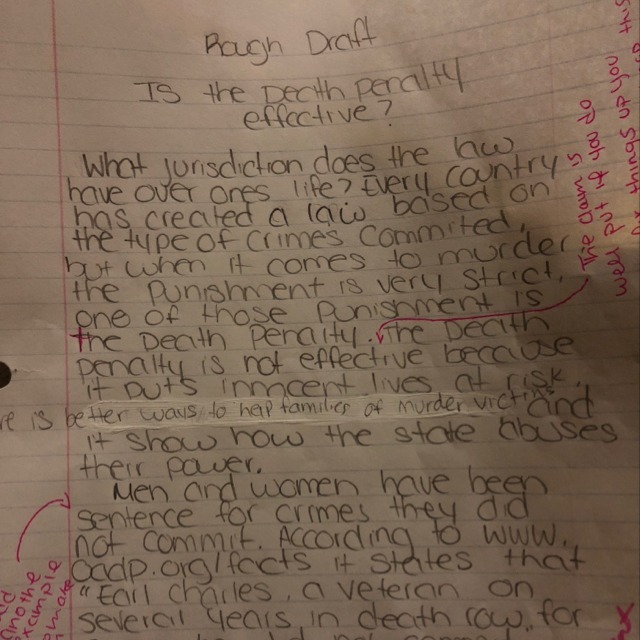 Rough Draft
Is the Death Penalty
effective?
What jurisdiction does the law
have over ones life? Every country
has created a law based on
the type of crimes commited,
but when it comes to murder
the punishment is very strict.
one of those Punishment is
the Death Penalty. The Death
penalty is not effective because
it puts innocent lives at risk,
re is better ways to help families of murder vict and
it show how the state abuses
their power.
Men and women have been
sentence for crimes they did
not commit. According to www.
oadp.org/facts it states that
"Earl Charles, a veteran on
several years in death row, for
The claim is
well put if you do
things up you this
example